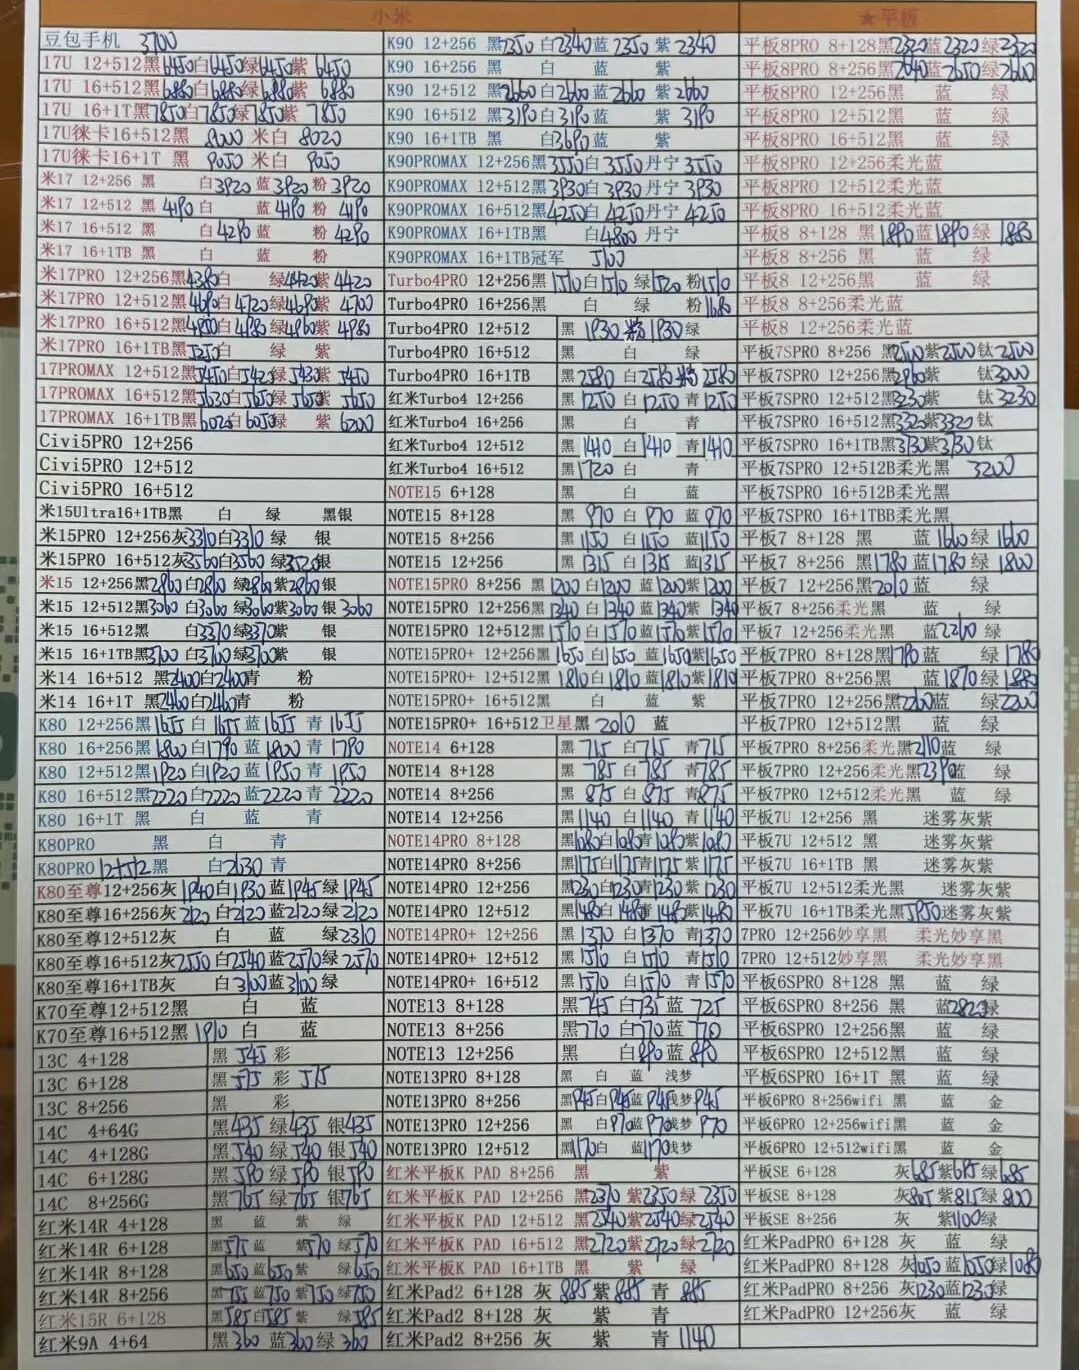 小米
★平板
豆包手机 3700
17U 12+512黑6450白6450绿6450紫 6450
17U 16+512黑6880白6880绿6880紫 6880
17U 16+1T黑7850白7850绿7850紫 7850
17U徕卡16+512黑 8000 米白 8020
17U徕卡16+1T 黑 9050 米白 9050
米17 12+256 黑 白3920 蓝3920 粉 3920
米17 12+512 黑 4190 白 蓝4190 粉 4190
米17 16+512 黑 白4290 蓝 粉 4290
米17 16+1TB 黑 白 蓝 粉
米17PRO 12+256黑4380白 绿4420紫 4420
米17PRO 12+512黑4690白4720绿4690紫 4700
米17PRO 16+512黑4950白4980绿4960紫 4980
米17PRO 16+1TB黑5250白 绿 紫
17PROMAX 12+512黑5450白5420绿5430紫 5450
17PROMAX 16+512黑5630白5650绿5650紫 5650
17PROMAX 16+1TB黑6020白6050绿 紫 6200
Civi5PRO 12+256
Civi5PRO 12+512
Civi5PRO 16+512
米15Ultra16+1TB黑 白 绿 黑银
米15PRO 12+256灰3310白3310 绿 银
米15PRO 16+512灰3560白3560 绿3520银
米15 12+256黑2860白2810 绿2860紫2860银
米15 12+512黑3060白3060 绿3060紫3060 银 3060
米15 16+512黑 白3370绿3370紫 银
米15 16+1TB黑3700 白3700绿3700紫 银
米14 16+512 黑2400白2400青 粉
米14 16+1T 黑2460白2460青 粉
K80 12+256黑1655 白 1655 蓝1655 青 1655
K80 16+256黑1800 白1790 蓝1800 青 1790
K80 12+512黑1920 白1920 蓝1950 青 1950
K80 16+512黑2220 白2220 蓝2220 青 2220
K80 16+1T 黑 白 蓝 青
K80PRO 黑 白 青
K80PRO 12+512 黑 白2630 青
K80至尊12+256灰 1940白1930 蓝1945 绿1945
K80至尊16+256灰 2120 白2120 蓝2120 绿 2120
K80至尊12+512灰 白 蓝 绿2310
K80至尊16+512灰2550 白2540 蓝2570 绿 2570
K80至尊16+1TB灰 白3100蓝3100绿
K70至尊12+512黑 白 蓝
K70至尊16+512黑 1910 白 蓝
13C 4+128 黑 545 彩
13C 6+128 黑 515 彩 515
13C 8+256 黑 彩
14C 4+64G 黑435 绿435 银435
14C 4+128G 黑540 绿540 银540
14C 6+128G 黑590 绿590 银590
14C 8+256G 黑765 绿765 银765
红米14R 4+128 黑 蓝 紫 绿
红米14R 6+128 黑575 蓝 紫570 绿570
红米14R 8+128 黑650 蓝650 紫 绿650
红米14R 8+256 黑755 蓝750 紫750 绿750
红米15R 6+128 黑585白585 紫 绿585
红米9A 4+64 黑360 蓝360 绿 360
K90 12+256 黑2350白2340蓝 2350 紫 2340
K90 16+256 黑 白 蓝 紫
K90 12+512 黑2660白2660蓝 2660 紫 2660
K90 16+512 黑3190白3190蓝 紫 3190
K90 16+1TB 黑 白3690蓝 紫
K90PROMAX 12+256黑3550白3550丹宁 3550
K90PROMAX 12+512黑3930白3930丹宁 3930
K90PROMAX 16+512黑4250白4250丹宁 4250
K90PROMAX 16+1TB黑 白4800 丹宁
K90PROMAX 16+1TB冠军 5100
Turbo4PRO 12+256黑1510白1510 绿1520 粉1510
Turbo4PRO 16+256黑 白 绿 粉1680
Turbo4PRO 12+512 黑 1930 粉1930绿
Turbo4PRO 16+512 黑 白 绿
Turbo4PRO 16+1TB 黑2580 白2580粉2580
红米Turbo4 12+256 黑1250 白1250 青1250
红米Turbo4 16+256 黑 白 青
红米Turbo4 12+512 黑 1410 白1410 青1410
红米Turbo4 16+512 黑1720 白 青
NOTE15 6+128 黑 白 蓝
NOTE15 8+128 黑 970 白 970 蓝 970
NOTE15 8+256 黑 1150 白 1150 蓝1150
NOTE15 12+256 黑 1315 白 1315 蓝1315
NOTE15PRO 8+256 黑 1200 白1200 蓝1200紫1200
NOTE15PRO 12+256黑1340 白1340 蓝1340紫 1340
NOTE15PRO 12+512黑1570 白1570 蓝1570紫1570
NOTE15PRO+ 12+256黑 1650 白1650 蓝1650紫1650
NOTE15PRO+ 12+512黑1810 白1810 蓝1810紫1810
NOTE15PRO+ 16+512黑 白 蓝 紫
NOTE15PRO+ 16+512卫星黑 2010 蓝
NOTE14 6+128 黑 715 白715 青715
NOTE14 8+128 黑 785 白 785 青785
NOTE14 8+256 黑 875 白 875 青875
NOTE14 12+256 黑1140 白 1140 青 1140
NOTE14PRO 8+128 黑1080白1080青1080紫1080
NOTE14PRO 8+256 黑1175白1175青1175 紫1175
NOTE14PRO 12+256 黑1230白1230青1230 紫1230
NOTE14PRO 12+512 黑1480白1480青1480紫1480
NOTE14PRO+ 12+256 黑 1370 白1370 青1370
NOTE14PRO+ 12+512 黑 1510 白1510 青1510
NOTE14PRO+ 16+512 黑 1570 白1570 青1570
NOTE13 8+128 黑 745 白735 蓝 725
NOTE13 8+256 黑770 白770 蓝 770
NOTE13 12+256 黑 白890 蓝 890
NOTE13PRO 8+128 黑 白 蓝 浅梦
NOTE13PRO 8+256 黑945白945蓝 945浅梦945
NOTE13PRO 12+256 黑 白970蓝 970浅梦970
NOTE13PRO 12+512 黑1170白 蓝1170浅梦
红米平板K PAD 8+256 黑 紫
红米平板K PAD 12+256 黑2370 紫2350绿 2350
红米平板K PAD 12+512 黑2540紫2540绿2540
红米平板K PAD 16+512 黑2720紫2720绿2720
红米平板K PAD 16+1TB 黑 紫 绿
红米Pad2 6+128 灰 885 紫885 青 885
红米Pad2 8+128 灰 紫 青
红米Pad2 8+256 灰 紫 青 1140
平板8PRO 8+128黑2320蓝2320绿2320
平板8PRO 8+256黑2640蓝2650绿2660
平板8PRO 12+256黑 蓝 绿
平板8PRO 12+512黑 蓝 绿
平板8PRO 16+512黑 蓝 绿
平板8PRO 12+256柔光蓝
平板8PRO 12+512柔光蓝
平板8PRO 16+512柔光蓝
平板8 8+128 黑 1890蓝1890绿 1880
平板8 8+256 黑 蓝 绿
平板8 12+256黑 蓝 绿
平板8 8+256柔光蓝
平板8 12+256柔光蓝
平板7SPRO 8+256 黑2500紫2500 钛2500
平板7SPRO 12+256黑2960紫 钛3000
平板7SPRO 12+512黑3230紫 钛 3230
平板7SPRO 16+512黑3320紫3320钛
平板7SPRO 16+1TB黑3730紫3730钛
平板7SPRO 12+512B柔光黑 3200
平板7SPRO 16+512B柔光黑
平板7SPRO 16+1TBB柔光黑
平板7 8+128 黑 蓝1660绿 1660
平板7 8+256 黑1780蓝1780绿 1800
平板7 12+256黑2010蓝 绿
平板7 8+256柔光黑 蓝 绿
平板7 12+256柔光黑 蓝2260 绿
平板7PRO 8+128黑1790 蓝 绿1780
平板7PRO 8+256黑 蓝1870 绿1880
平板7PRO 12+256黑2200蓝 绿2200
平板7PRO 12+512黑 蓝 绿
平板7PRO 8+256柔光黑2110蓝 绿
平板7PRO 12+256柔光黑2390蓝 绿
平板7PRO 12+512柔光黑 蓝 绿
平板7U 12+256 黑 迷雾灰紫
平板7U 12+512 黑 迷雾灰紫
平板7U 16+1TB 黑 迷雾灰紫
平板7U 12+512柔光黑 迷雾灰紫
平板7U 16+1TB柔光黑5950迷雾灰紫
7PRO 12+256妙享黑 柔光妙享黑
7PRO 12+512妙享黑 柔光妙享黑
平板6SPRO 8+128 黑 蓝 绿
平板6SPRO 8+256 黑 蓝2820绿
平板6SPRO 12+256黑 蓝 绿
平板6SPRO 12+512黑 蓝 绿
平板6SPRO 16+1T 黑 蓝 绿
平板6PRO 8+256wifi 黑 蓝 金
平板6PRO 12+256wifi黑 蓝 金
平板6PRO 12+512wifi黑 蓝 金
平板SE 6+128 灰685紫685绿685
平板SE 8+128 灰805紫815绿800
平板SE 8+256 灰 紫1100绿
红米PadPRO 6+128 灰 蓝 绿
红米PadPRO 8+128 灰1050蓝1050绿1080
红米PadPRO 8+256 灰1230蓝1230绿
红米PadPRO 12+256灰 蓝 绿